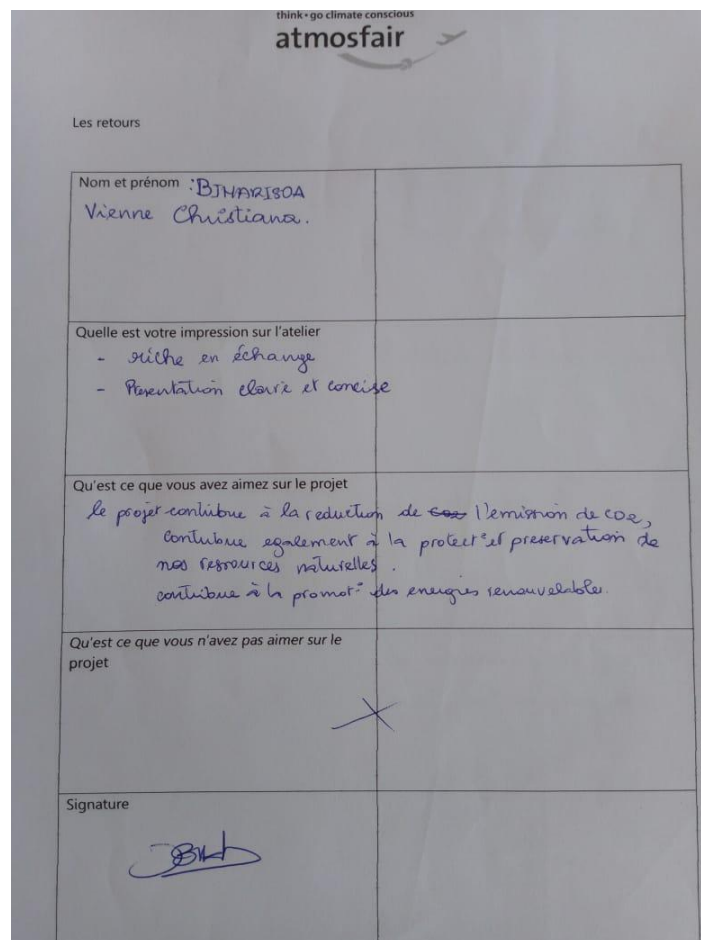 think • go climate conscious
atmosfair
Les retours
Nom et prénom : BINARISOA
Vienne Christiana.
Quelle est votre impression sur l'atelier
- riche en échange
- Présentation claire et concise
Qu'est ce que vous avez aimez sur le projet
le projet contribue à la reduction de co2 l'emission de co2,
contribue egalement à la protect° et preservation de
nos ressources naturelles.
contribue à la promot° des energies renouvelables.
Qu'est ce que vous n'avez pas aimer sur le
projet
Signature